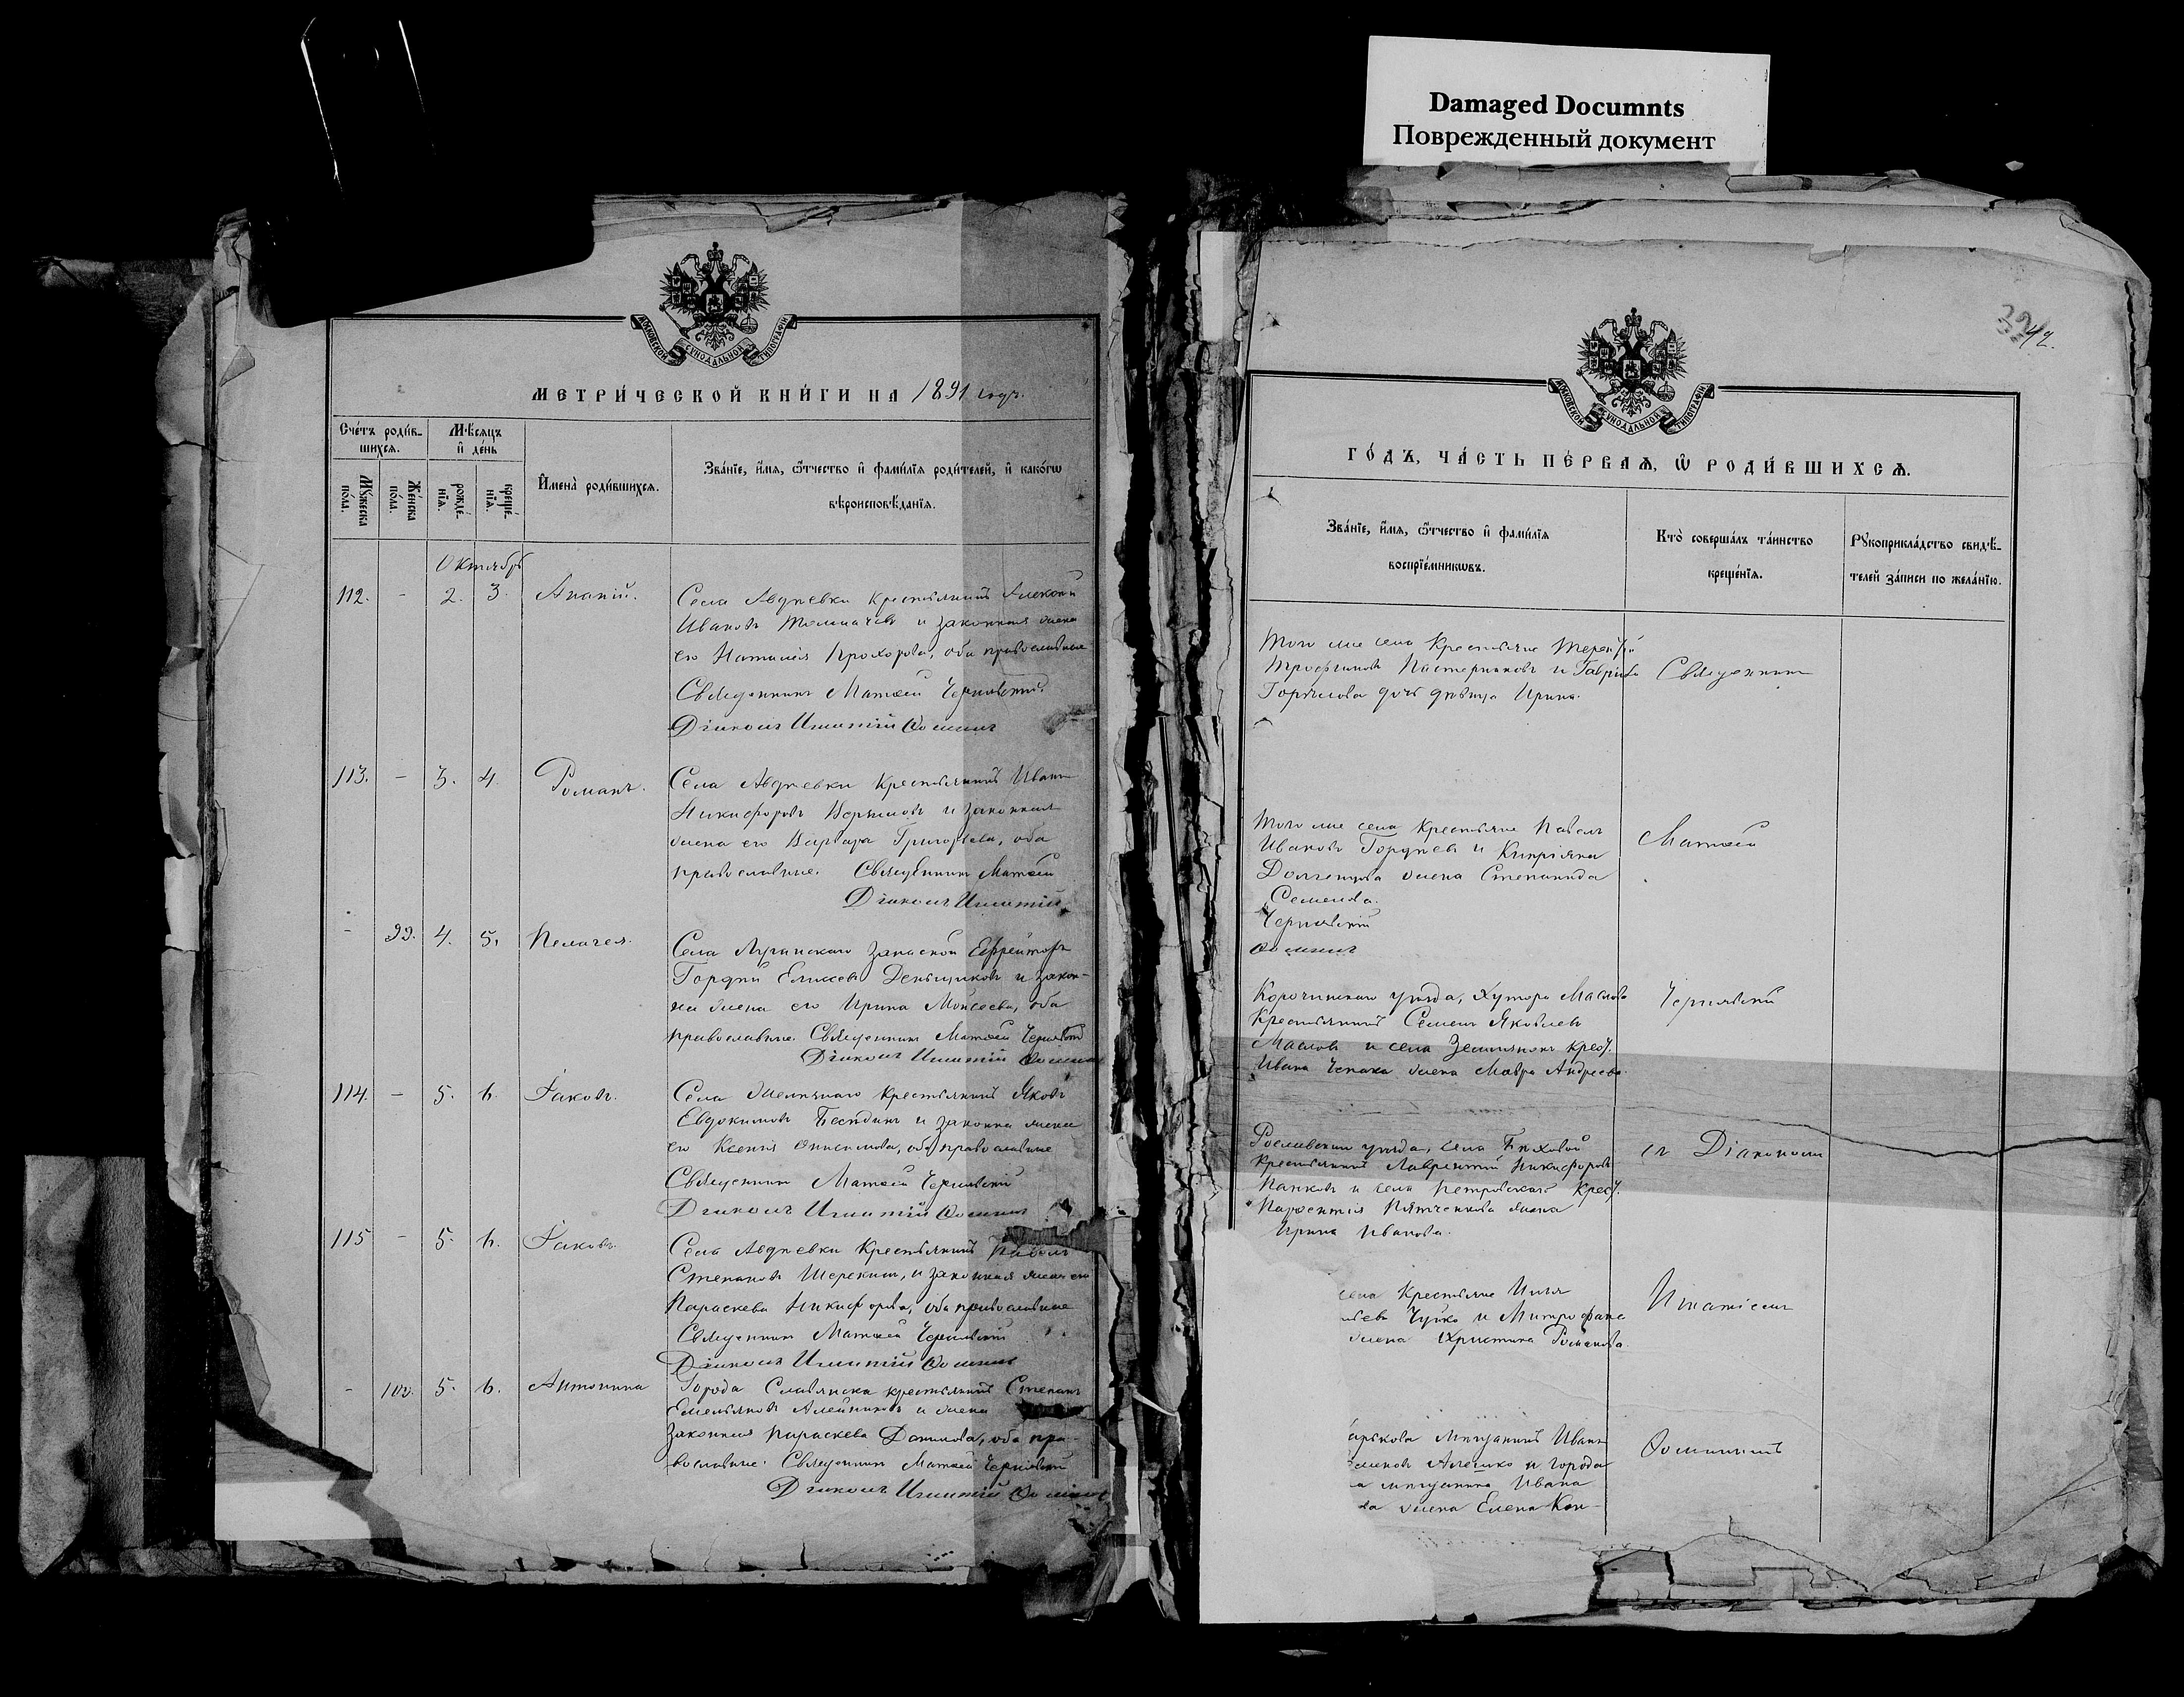 Damaged Documnts
Поврежденный документ
МОСКОВСКОЙ СУНОДАЛЬНОЙ ТИПОГРАФІИ
МЕТРИ́ЧЕСКОЙ КНИ́ГИ НА 1891 годъ.
Сче́тъ роди́в-
шихсѧ.
Мѣ́сѧцъ
и҆ де́нь
Мꙋ́жеска
по́ла.
Же́нска
по́ла.
рожде́-
нїѧ.
креще́-
нїѧ.
И҆мена̀ роди́вшихсѧ.
Зва́нїе, и҆́мѧ, ѻ҆́тчество и҆ фами́лїѧ роди́телей, и҆ како́гѡ
вѣроисповѣ́данїѧ.
Октябрь
112. - 2. 3. Ананій.
Села Авдѣевки крестьянинъ Алексѣй
Ивановъ Толмачевъ и законная жена
его Наталія Прохорова, оба православные
Священникъ Матѳей Чернявскій
Діаконъ Игнатій Ѳоминъ
113. - 3. 4. Романъ.
Села Авдѣевки крестьянинъ Иванъ
Никифоровъ и законная
жена его Варвара Григорьева, оба
православные. Священникъ Матѳей
Діаконъ Игнатій
- 99. 4. 5. Пелагея.
Села Луганскаго запасной Ефрейторъ
Гордѣй Елисеевъ Деньщиковъ и закон-
ная жена его Ирина Моисеева, оба
православные. Священникъ Матѳей Чернявскій
Діаконъ Игнатій Ѳоминъ
114. - 5. 6. Іаковъ.
Села крестьянинъ Яковъ
Евдокимовъ и законна жена
его Ксенія Онисимова, оба православные
Священникъ Матѳей Чернявскій
Діаконъ Игнатій Ѳоминъ
115 - 5. 6. Іаковъ.
Села Авдѣевки крестьянинъ Павелъ
Степановъ Шерекинъ, и законная жена его
Параскева Никифорова, оба православные
Священникъ Матѳей Чернявскій
Діаконъ Игнатій Ѳоминъ
- 100. 5. 6. Антонина
Города Славянска крестьянинъ Степанъ
Емельяновъ Алейниковъ и жена
законная Параскева Данилова, оба пра-
вославные. Священникъ Матѳей Чернявскій
Діаконъ Игнатій Ѳоминъ
42.
МОСКОВСКОЙ СУНОДАЛЬНОЙ ТИПОГРАФІИ
ГО́ДЪ, ЧА́СТЬ ПЕ́РВАѦ, Ѡ҆ РОДИ́ВШИХСѦ.
Зва́нїе, и҆́мѧ, ѻ҆́тчество и҆ фами́лїѧ
воспрїе́мникѡвъ.
Кто̀ соверша́лъ та́инство
креще́нїѧ.
Рꙋкоприкла́дство свидѣ́-
телей за́писи по жела́нїю.
Того же села крестьяне Терентій
Трофимовъ Пастернаковъ и Гавріила
Горѣлова дочь дѣвица Ирина.
Священникъ
Того же села крестьяне Павелъ
Ивановъ Гордѣевъ и Кипріяна
Долженкова жена Степанида
Семенова.
Чернявскій
Ѳоминъ
Матѳей
Корочинскаго уѣзда, хутора Маслова
крестьянинъ Семенъ Яковлевъ
Масловъ и села Землянокъ крест.
Ивана Чепака жена Мавра Андреева.
Чернявскій
Рославскаго уѣзда, села
крестьянинъ Лаврентій Никифоровъ
Панковъ и села Петровскаго крест.
Парѳентія жена
Ирина Иванова.
съ Діакономъ
села крестьяне Илья
Чуйко и Митрофана
жена Христина Романова.
Игнатіемъ
мѣщанинъ Иванъ
Алешко и города
мѣщанина Ивана
жена Елена Кон-
Ѳоминымъ